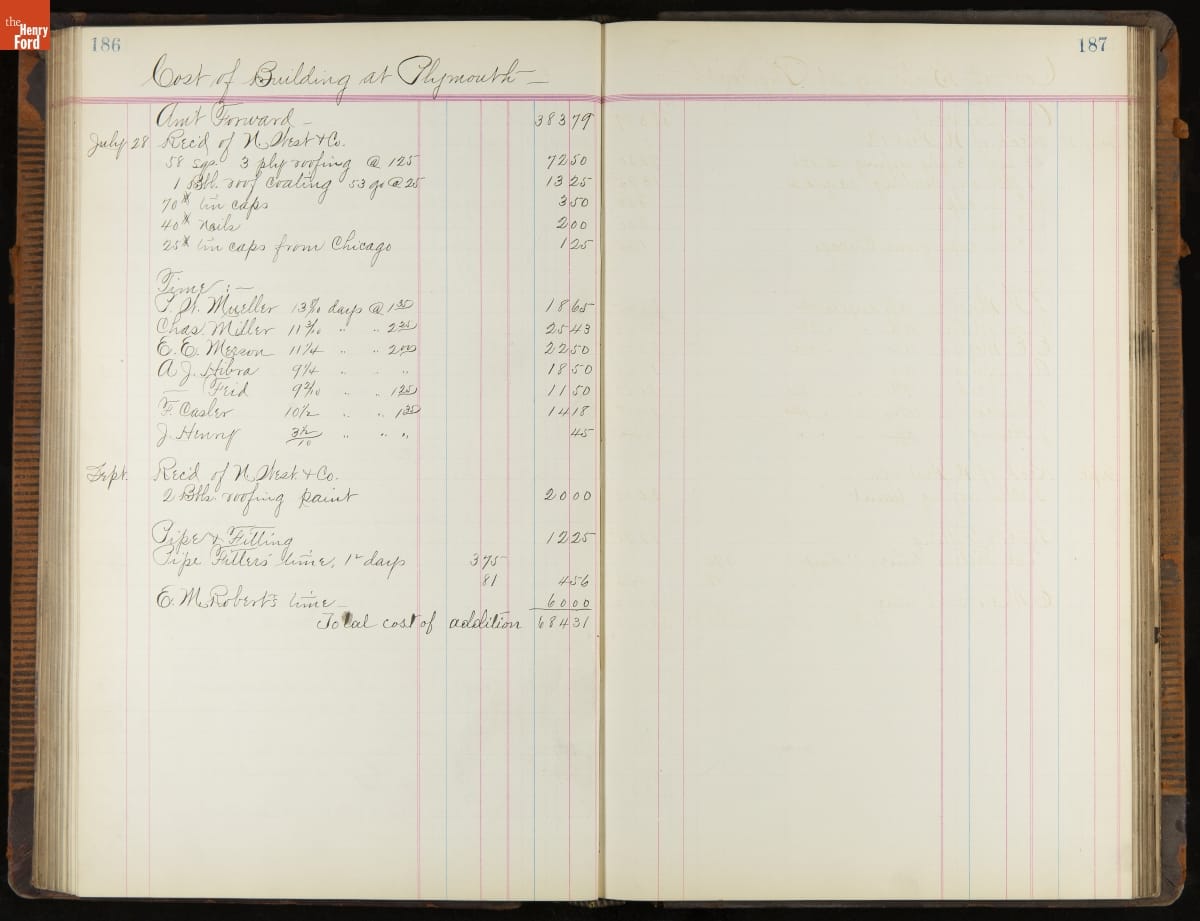 the Henry Ford
186
187
Cost of Building at Plymouth
Amt Forward 383 79
July 28 Rec'd of N. West & Co.
58 sqs. 3 ply roofing @ 125 72 50
1 Bbl. roof coating 53 go @ 25 13 25
70# tin caps 3 50
40# nails 2 00
25# tin caps from Chicago 1 25
Time:—
Mueller days @ 1 35 18 65
Chas. Miller 11 3/10 " " 2 25 25 43
E. E. Merson 11 1/4 " " 2 00 22 50
A. J. Hibra 9 1/4 " " 18 50
— Feid 9 2/10 " " 1 25 11 50
F. Casler 10 1/2 " " 1 35 14 18
J. Henry 3 1/2/10 " " " 45
Sept. Rec'd of N. West & Co.
2 Bbls. roofing paint 20 00
Pipe & Fitting 12 25
Pipe Fitters' time, days 3 75
81 4 56
E. M. Robert's time 60 00
Total cost of addition 684 31